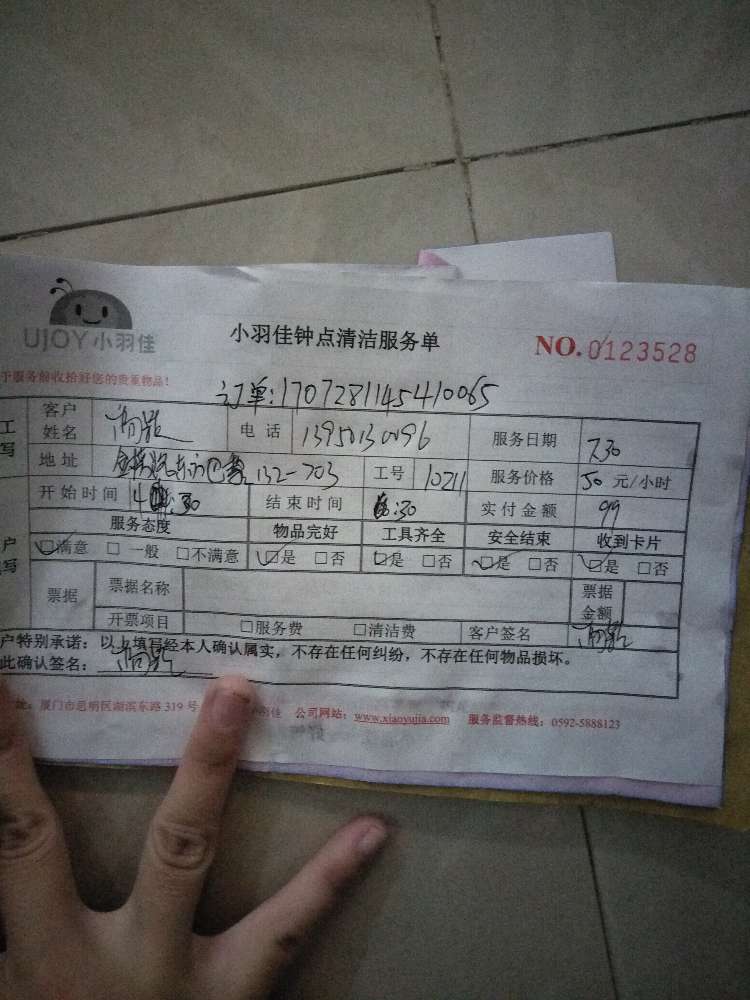 UJOY小羽佳
小羽佳钟点清洁服务单
NO. 0123528
于服务前收拾好您的贵重物品！
订单:1707281145410065
工 客户姓名 电话 13950130096 服务日期 7.30
写 地址 132-703 工号 10211 服务价格 50 元/小时
开始时间 :30 结束时间 :30 实付金额 99
服务态度 物品完好 工具齐全 安全结束 收到卡片
户 ☑满意 □ 一般 □不满意 ☑是 □否 ☑是 □否 ☑是 □否 ☑是 □否
写 票据 票据名称 票据金额
开票项目 □服务费 □清洁费 客户签名
户特别承诺：以上填写经本人确认属实，不存在任何纠纷，不存在任何物品损坏。
此确认签名：
址：厦门市思明区湖滨东路 319 号 羽佳 公司网站：www.xiaoyujia.com 服务监督热线：0592-5888123